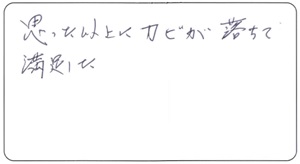 思った以上にカビが落ちて
満足した